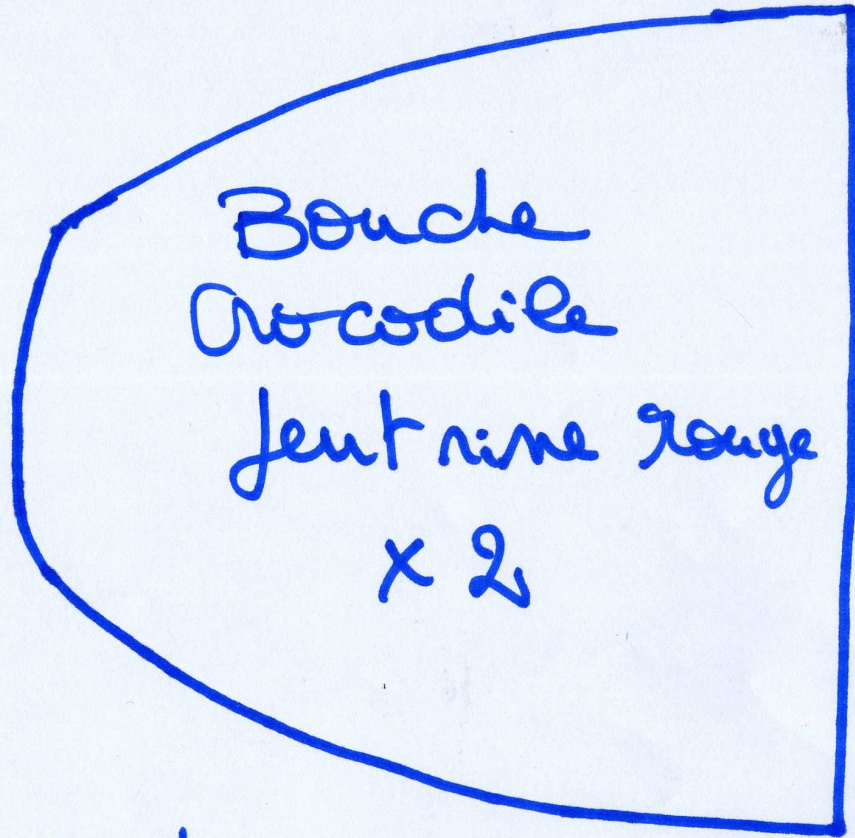 Bouche
Crocodile
feutrine rouge
x 2